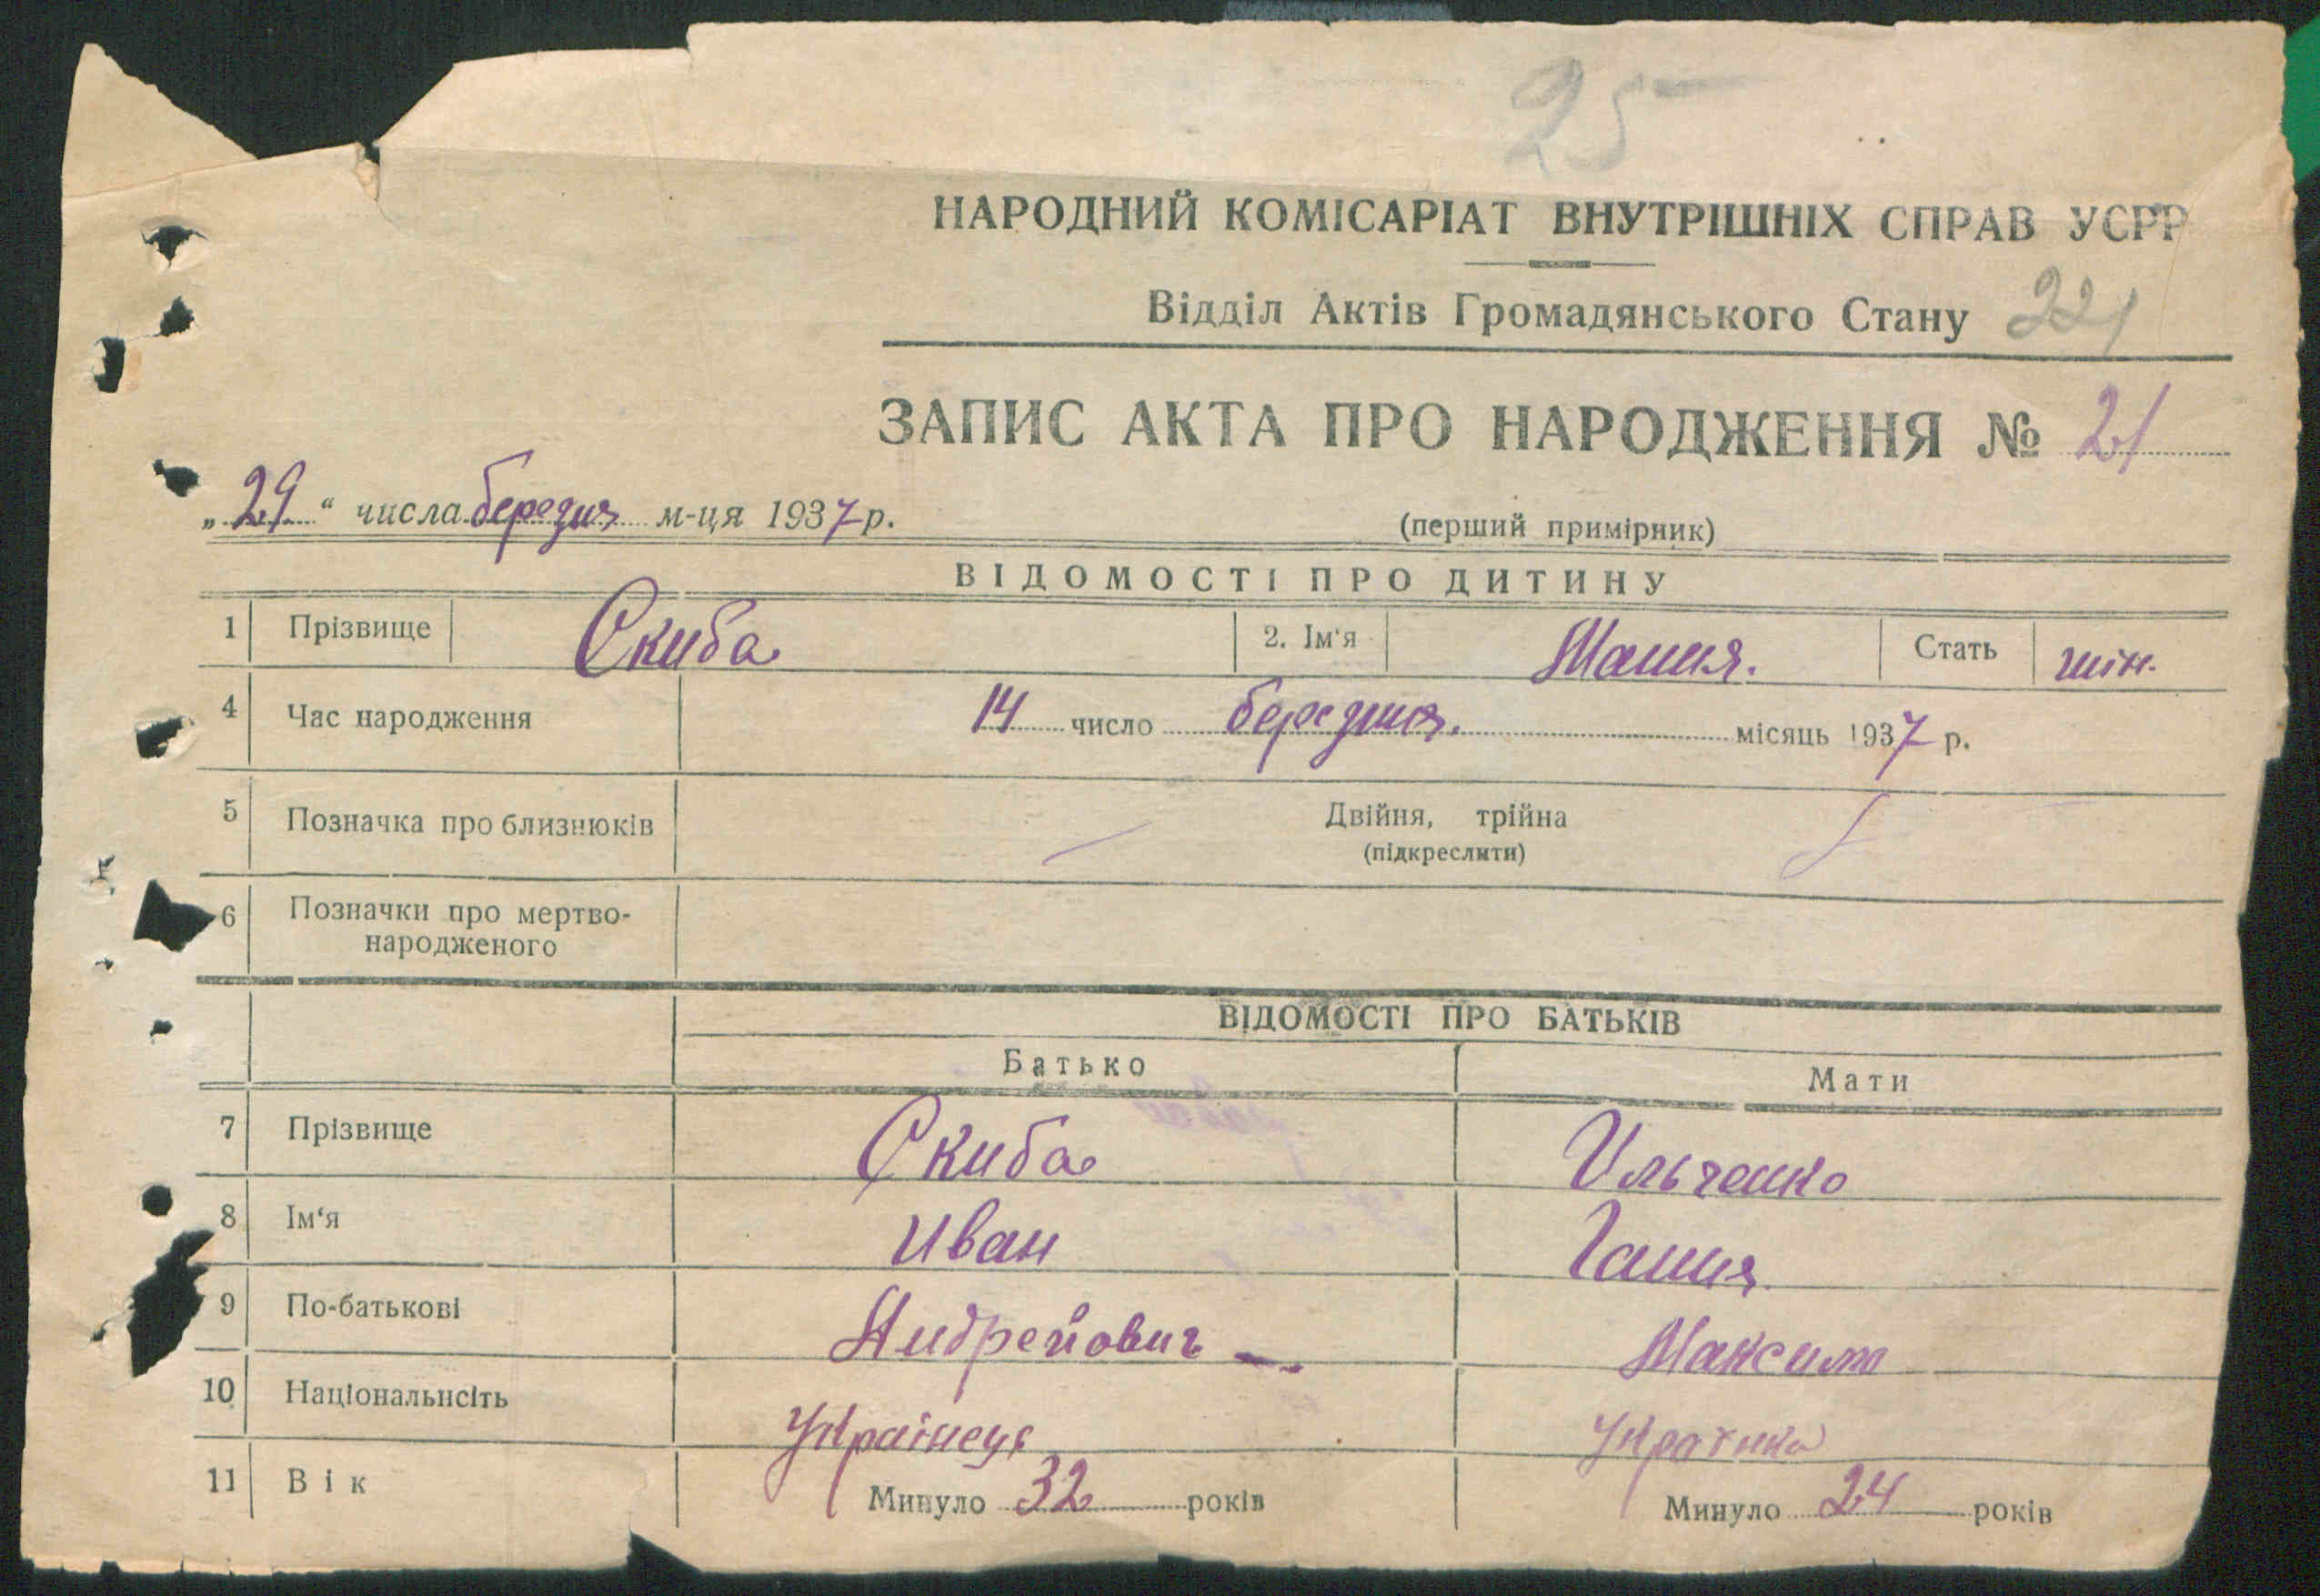 25
НАРОДНИЙ КОМІСАРІАТ ВНУТРІШНІХ СПРАВ УСРР
Відділ Актів Громадянського Стану 221
ЗАПИС АКТА ПРО НАРОДЖЕННЯ № 21
„29“ числа березня м-ця 1937 р.
(перший примірник)
ВІДОМОСТІ ПРО ДИТИНУ
1 Прізвище Скиба 2. Ім'я Стать жін.
4 Час народження 14 число березня. місяць 1937 р.
5 Позначка про близнюків Двійня, трійня
(підкреслити)
6 Позначки про мертво-
народженого
ВІДОМОСТІ ПРО БАТЬКІВ
Батько Мати
7 Прізвище Скиба Ильченко
8 Ім'я Иван Гання
9 По-батькові Андрейович Максим
10 Національнсіть Українець Українка
11 Вік Минуло 32 років Минуло 24 років